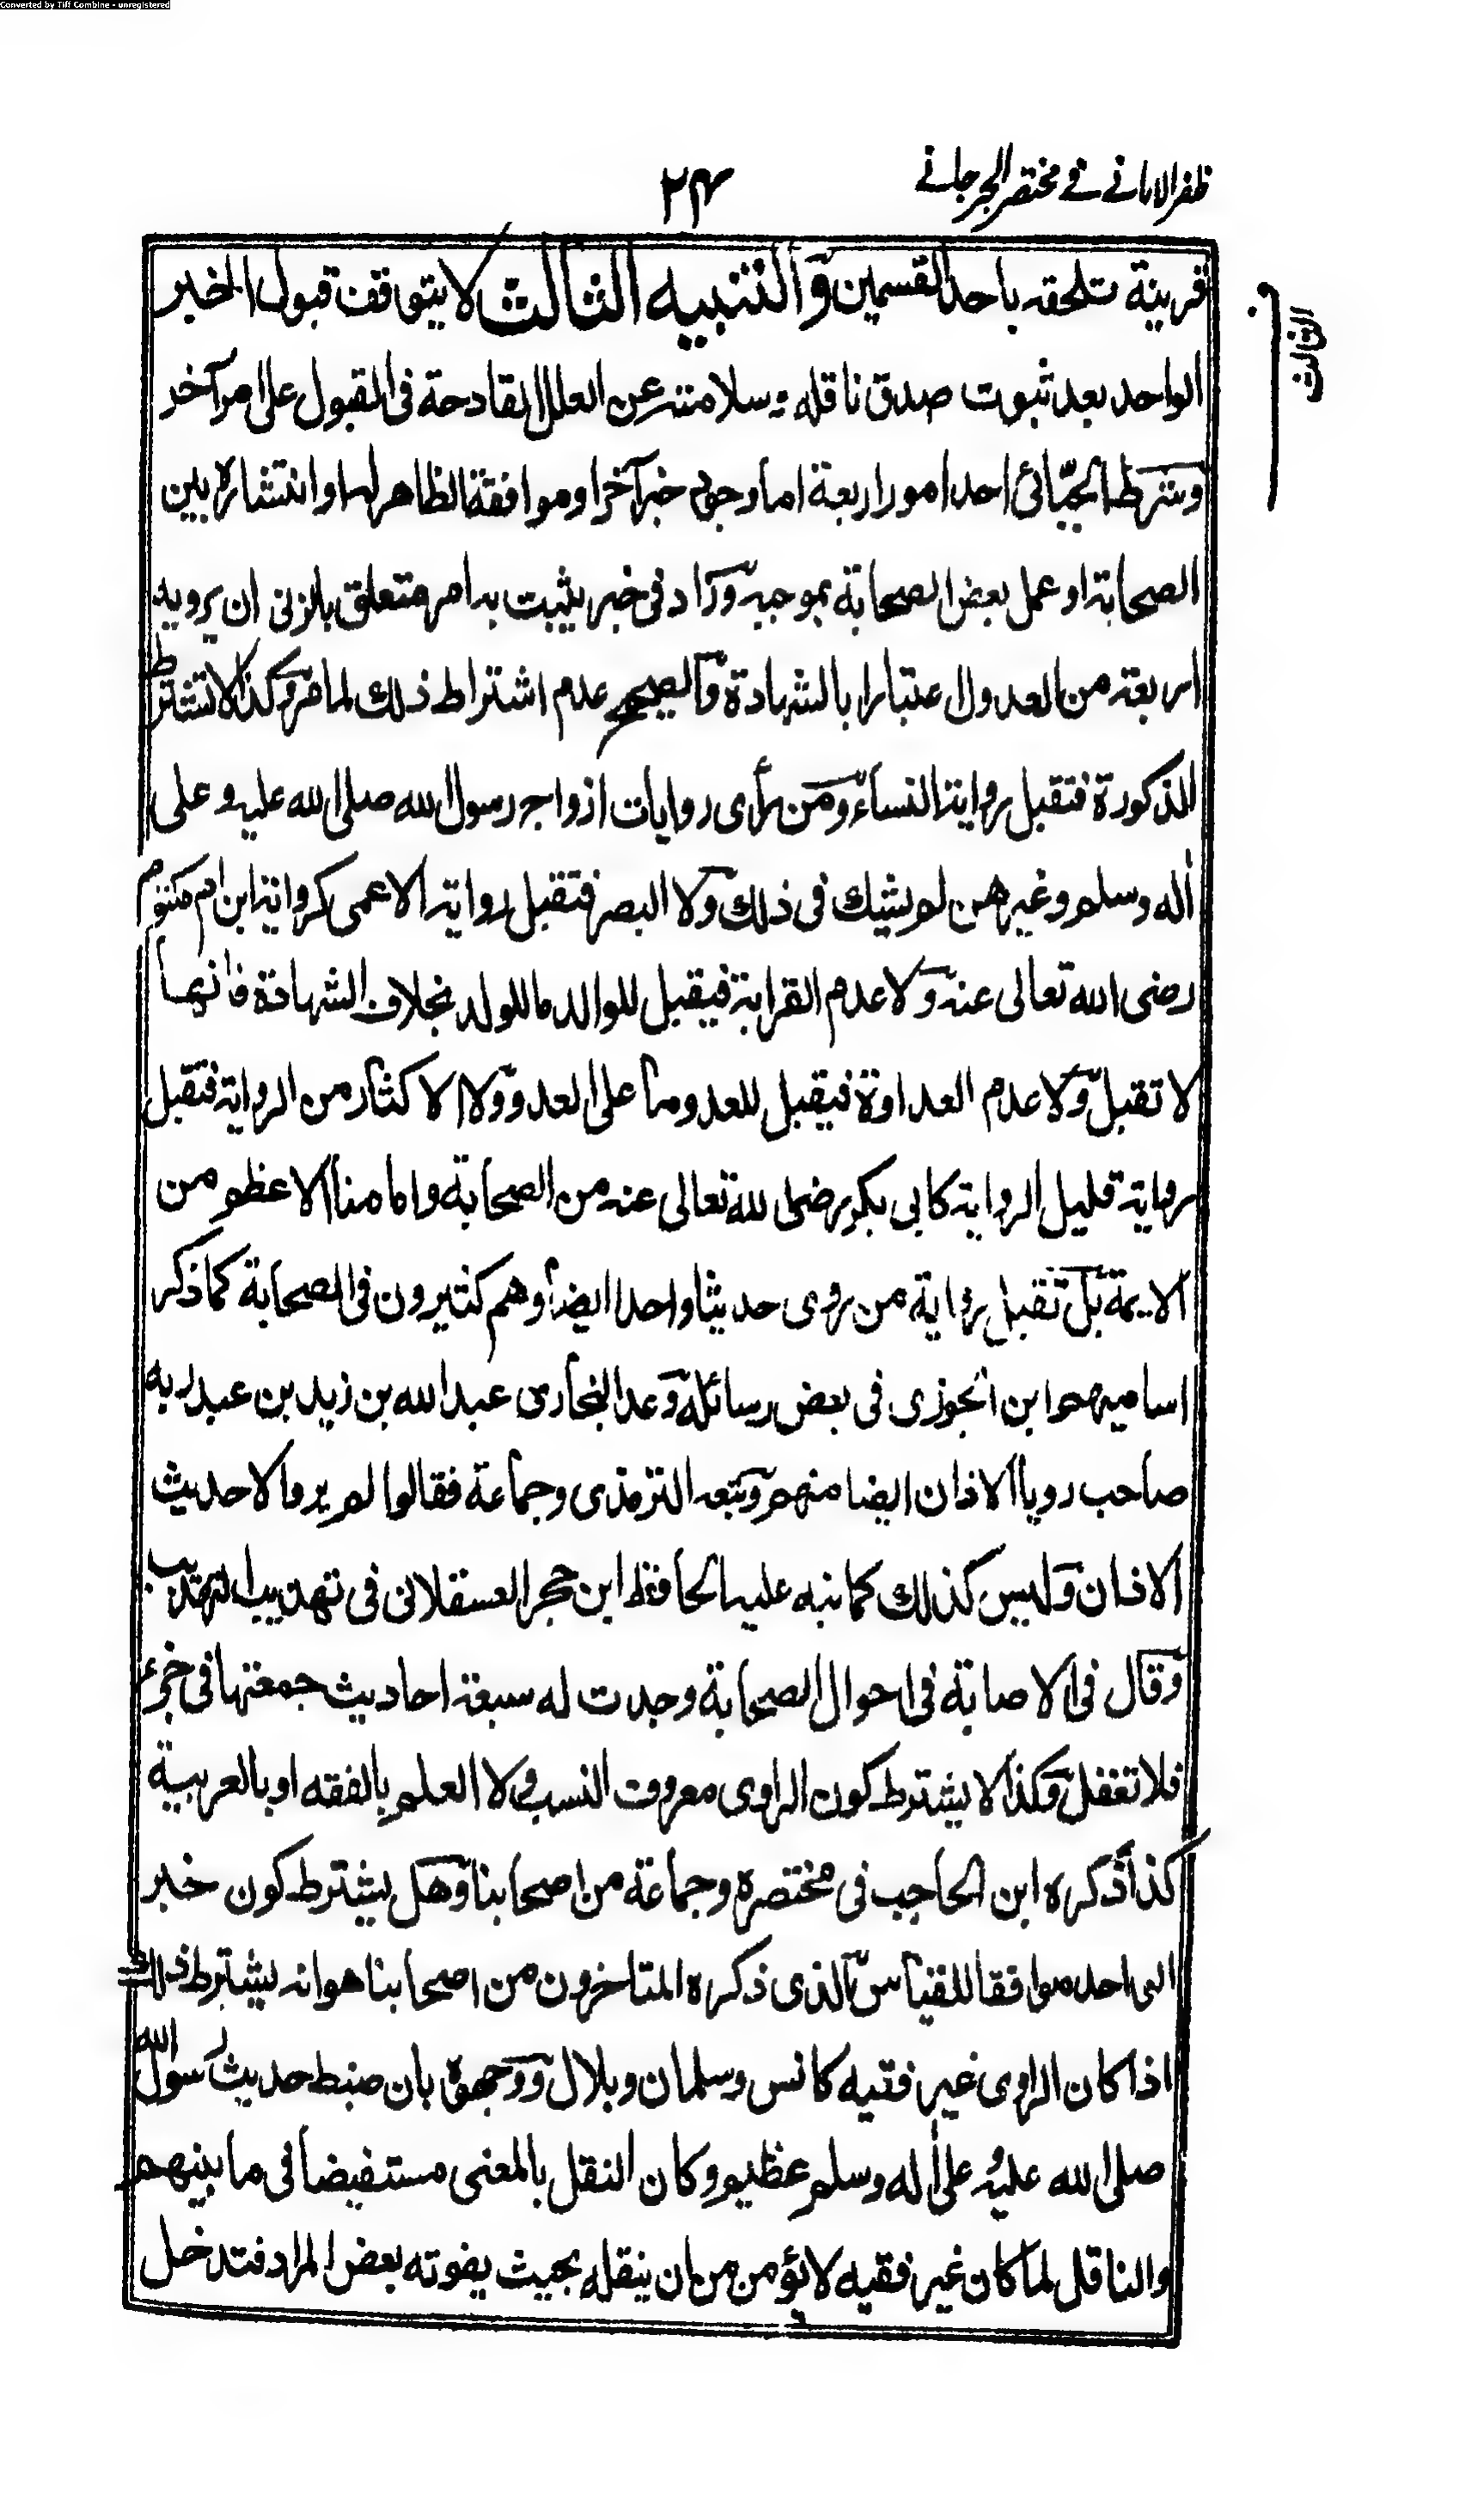 Converted by Tiff Combine - unregistered
ظفر الامانے فے مختصر الجرجانے
۲۴
قرينة تلحقه باحد القسمين والتنبيه الثالث لا يتوقف قبول الخبر
الثالث
الواحد بعد ثبوت صدق ناقله وسلامته عن العلل القادحة فى القبول على امر آخر
وشرط الجبّائى احد امور اربعة اما وجود خبر آخر او موافقة الظاهر لها او انتشاره بين
الصحابة او عمل بعض الصحابة بموجبه وزاد فى خبر يثبت به امر متعلق بالزنى ان يرويه
اربعة من العدول اعتبارا بالشهادة والصحيح عدم اشتراط ذلك لما مر وكذا لا تشترط
الذكورة فتقبل رواية النساء ومن رأى روايات ازواج رسول الله صلى الله عليه وعلى
اٰله وسلم وغيرهن لم يشك فى ذلك ولا البصر فتقبل رواية الاعمى كرواية ابن ام مكتوم
رضى الله تعالى عنه ولا عدم القرابة فيقبل للوالد ما للولد بخلاف الشهادة فانها
لا تقبل ولا عدم العداوة فيقبل للعدو ما على العدو ولا الاكثار من الرواية فتقبل
رواية قليل الرواية كابى بكر رضى الله تعالى عنه من الصحابة وامامنا الاعظم من
الايمة بل تقبل رواية من روى حديثا واحدا ايضا وهم كثيرون فى الصحابة كما ذكر
اساميهم ابن الجوزى فى بعض رسائله وعد البخارى عبد الله بن زيد بن عبد ربه
صاحب رويا الاذان ايضا منهم وتبعه الترمذى وجماعة فقالوا لم يرو الا حديث
الاذان وليس كذلك كما نبه عليه الحافظ ابن حجر العسقلانى فى تهذيب التهذيب
وقال فى الاصابة فى احوال الصحابة وجدت له سبعة احاديث جمعتها فى جزء
فلا تغفل وكذا لا يشترط كون الراوى معروف النسب ولا العلم بالفقه او بالعربية
كذا ذكره ابن الحاجب فى مختصره وجماعة من اصحابنا وهل يشترط كون خبر
الواحد موافقا للقياس الذى ذكره المتاخرون من اصحابنا هو انه يشترط ذلك
اذا كان الراوى غير فقيه كانس وسلمان وبلال ووجهوه بان ضبط حديث رسول الله
صلى الله عليه وعلى اٰله وسلم عظيم وكان النقل بالمعنى مستفيضا فى ما بينهم
والناقل لما كان غير فقيه لا يؤمن من ان ينقله بحيث يفوته بعض المراد فتدخل